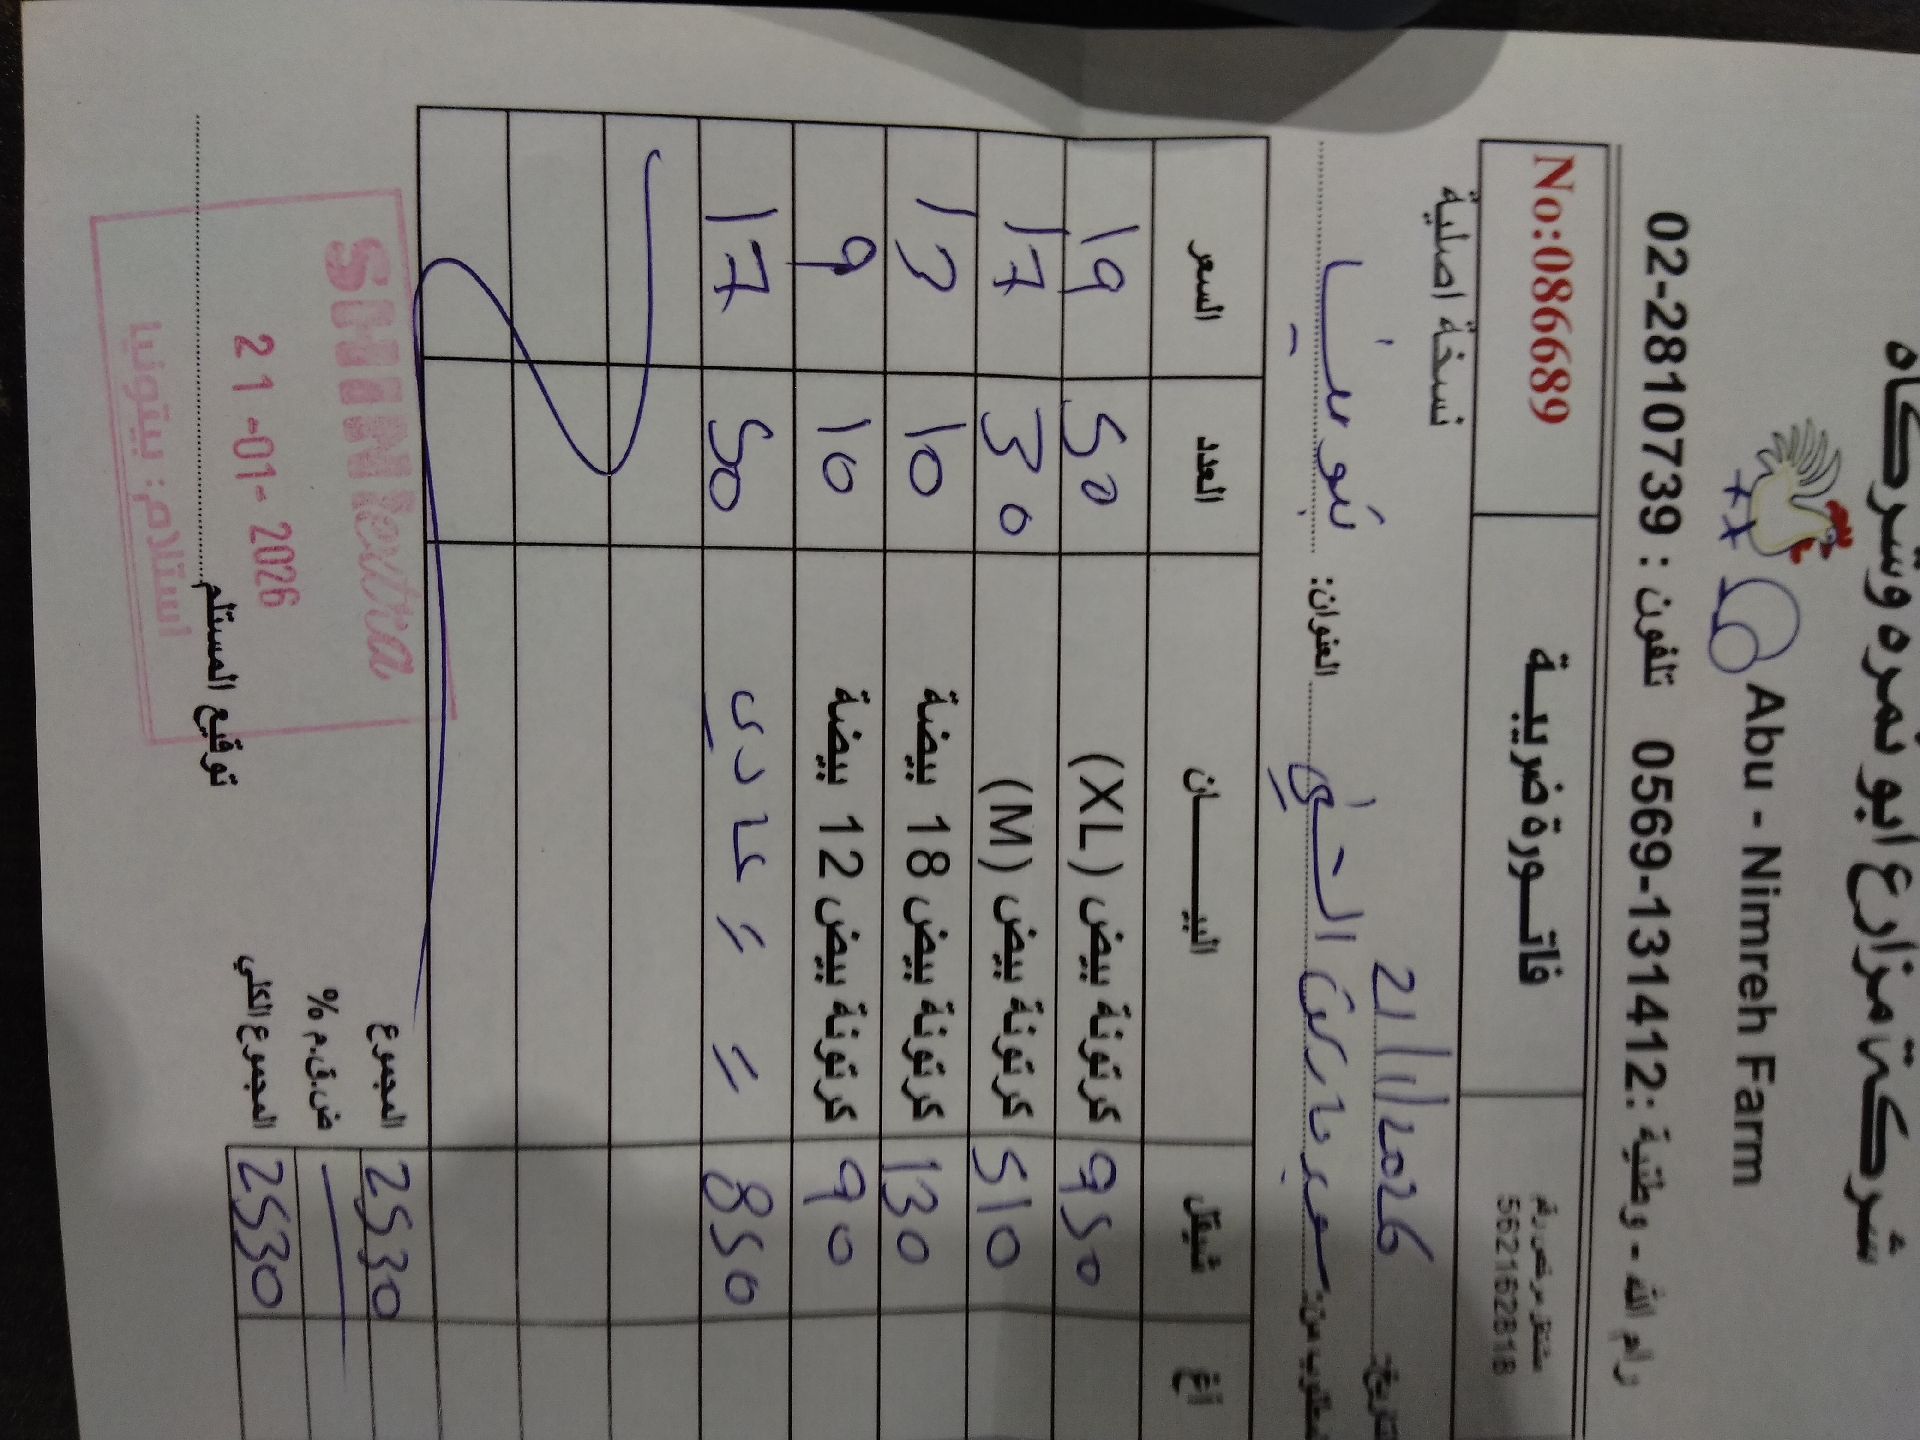 شركة مزارع ابو نمره وشركاه
Abu - Nimreh Farm
رام الله - وطنية : 0569-131412 تلفون : 02-2810739
مشتغل مرخص رقم
562162818
فاتـــورة ضريبيـــة
No:086689
نسخة اصلية
التاريخ: 21/1/2026
المطلوب من: سوبر ماركت الشني العنوان:
آغ شيقل البيــــــان العدد السعر
950 كرتونة بيض (XL) 50 19
510 كرتونة بيض (M) 30 17
130 كرتونة بيض 18 بيضة 10 13
90 كرتونة بيض 12 بيضة 10 9
850 = = عادي 50 17
المجموع 2530
ض.ق.م %
المجموع الكلي 2530
توقيع المستلم
SHINI extra
21-01-2026
استلام: بيتونيا